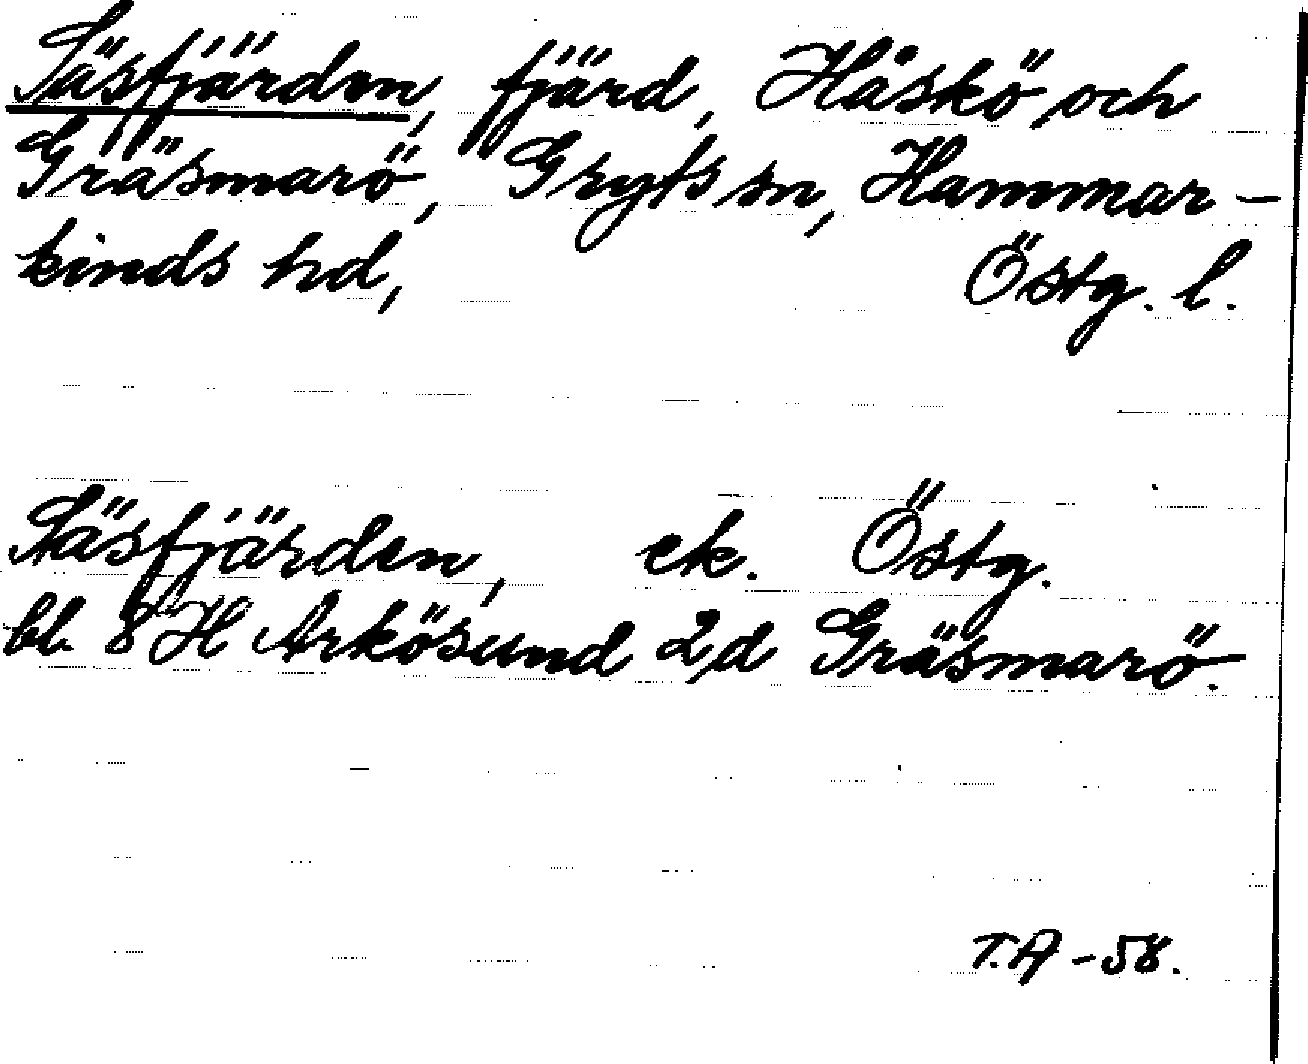 Säsfjärden, fjärd, Håskö och
Gräsmarö, Gryts sn, Hammar-
kinds hd, Östg. l.
Säsfjärden, ek. Östg.
bl. 8 H Arkösund 2,d Gräsmarö.
T.A -58.